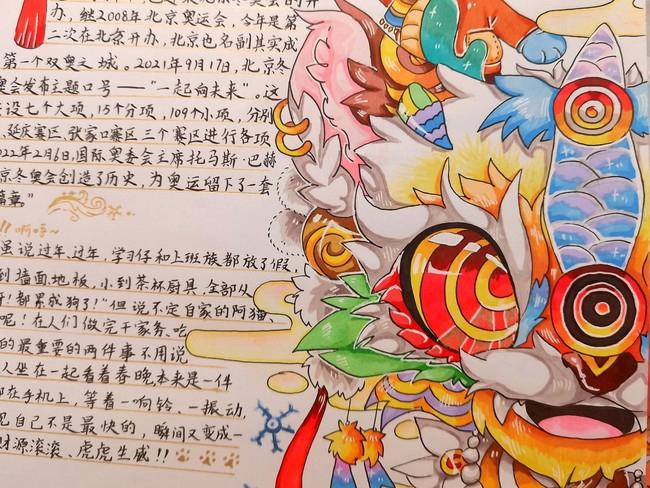 办，继2008年北京奥运会，今年是第
二次在北京开办，北京也名副其实成
第一个双奥之城。2021年9月17日，北京冬
奥会发布主题口号——“一起向未来”。这
设七个大项，15个分项，109个小项，分别
延庆赛区，张家口赛区三个赛区进行各项
22年2月6日，国际奥委会主席托马斯·巴赫
京冬奥会创造了历史，为奥运留下了一套
”
!! 啊嘻~
虽说过年，过年，学习仔和上班族都放了假，
到墙面地板，小到茶杯厨具，全部从
！都累成狗了！”但说不定自家的阿猫、
呢！在人们做完干家务、吃
的最重要的两件事不用说
人坐在一起看着春晚本来是一件
在手机上，等着一响铃、一振动，
见自己不是最快的，瞬间又变成一
财源滚滚、虎虎生威!!